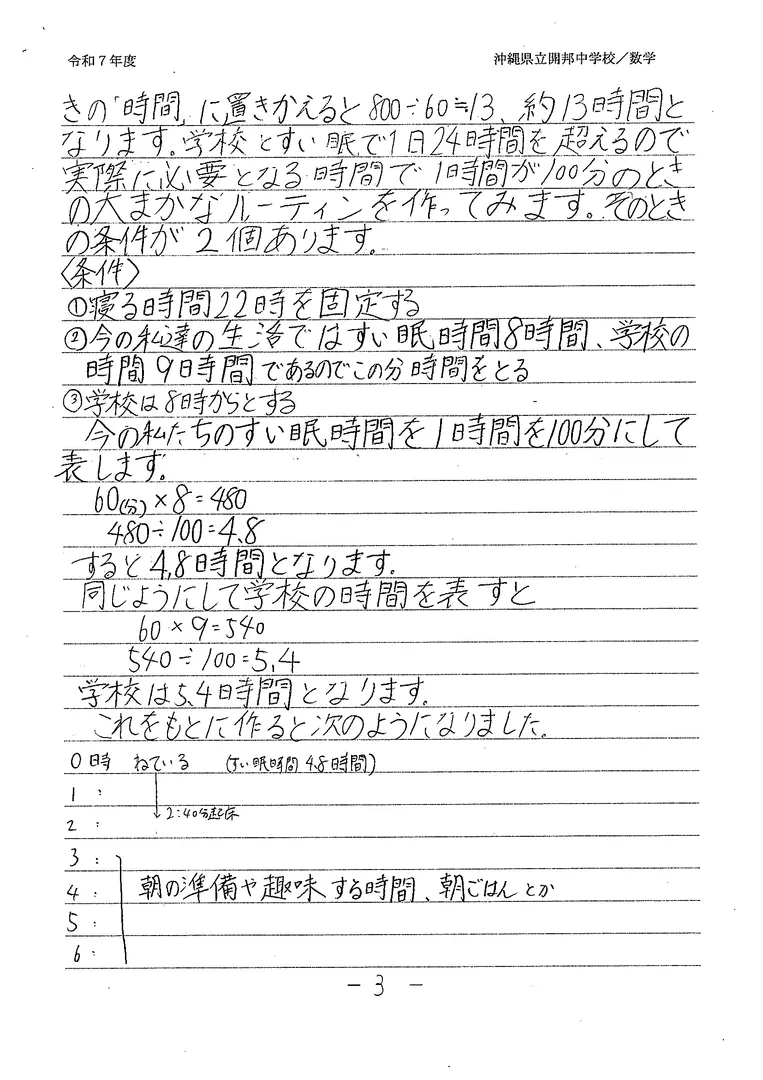 令和７年度　沖縄県立開邦中学校／数学
きの「時間」に置きかえると800÷60≒13、約13時間と
なります。学校とすい眠で1日24時間を超えるので
実際に必要となる時間で1時間が100分のとき
の大まかなルーティンを作ってみます。そのとき
の条件が2個あります。
〈条件〉
①寝る時間22時を固定する
②今の私達の生活ではすい眠時間8時間、学校の
時間9時間であるのでこの分時間をとる
③学校は8時からとする
今の私たちのすい眠時間を1時間を100分にして
表します。
60(分)×8=480
480÷100=4.8
すると4.8時間となります。
同じようにして学校の時間を表すと
60×9=540
540÷100=5.4
学校は5.4時間となります。
これをもとに作ると次のようになりました。
0時 ねている (すい眠時間 4.8時間)
1：
↓2:40分起床
2：
3：
4： 朝の準備や趣味する時間、朝ごはんとか
5：
6：
－3－